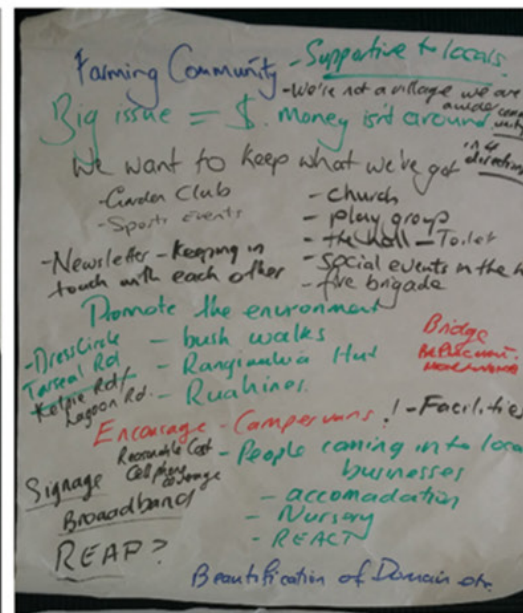 Farming Community
- Supportive to locals.
- We're not a village we are
a wider
Big issue = $. Money isn't around.
in 4
direction
We want to keep what we've got
- Garden Club
- Sports Events
- Newsletter - Keeping in
touch with each other
- church
- play group
- the hall - Toilet
- Social events in the
- fire brigade
Promote the environment
- Dress Circle
Tarseal Rd
Kelpie Rd
Lagoon Rd.
- bush walks
- Rangiwahia Hut
- Ruahines.
Bridge
Encourage - Campervans ! - Facilities
Reasonable Cost
Cell phone
coverage
- People coming into local
businesses
- accomadation
- Nursery
- REACT
Signage
Broadband
REAP?
Beautification of Domain etc.